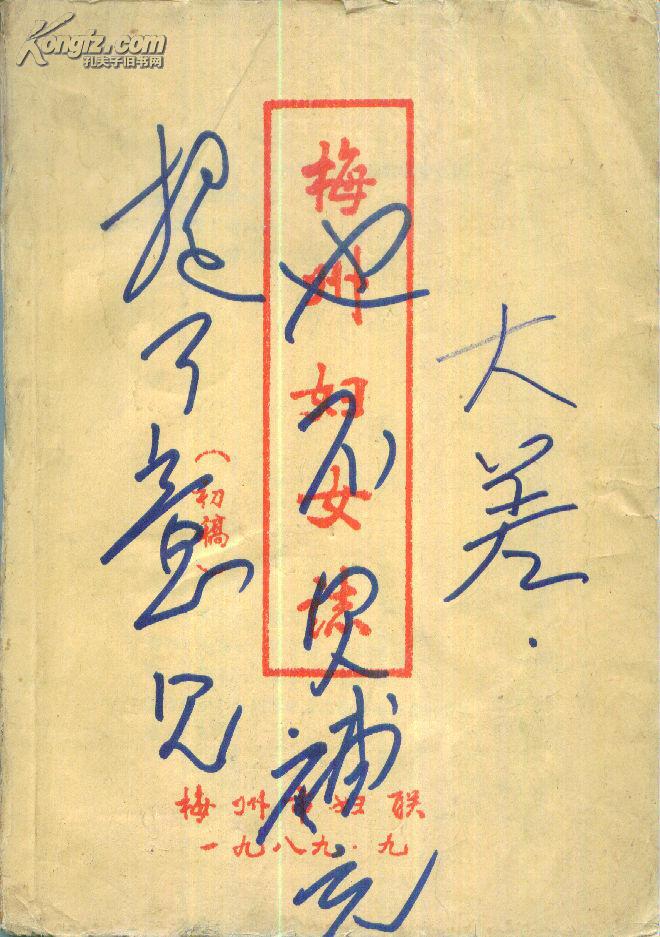 Kongfz.com
孔夫子旧书网
梅州妇女志
（初稿）
梅州市妇联
一九八九.九
大差.
提了意见
也不见补充